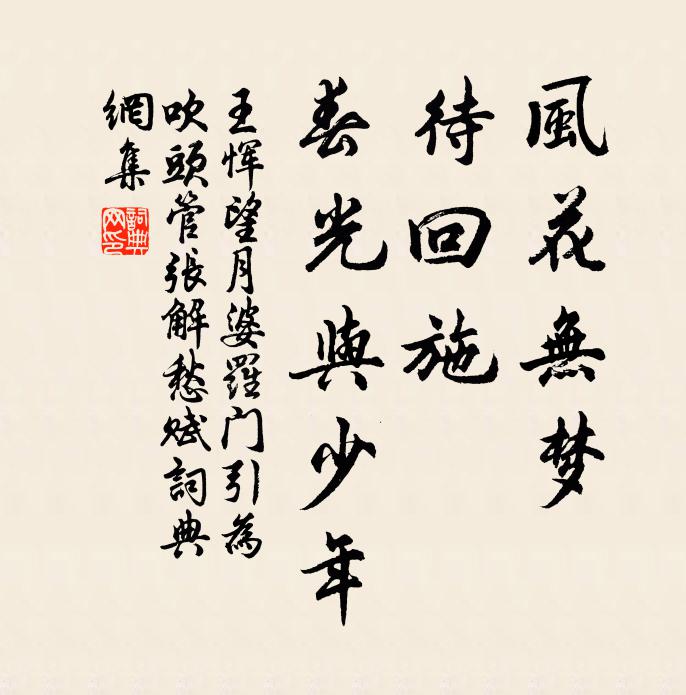 風花無梦
待回施
春光與少年
王惲望月婆羅门引為
吹頭管張解愁賦詞典
網集
詞典网印